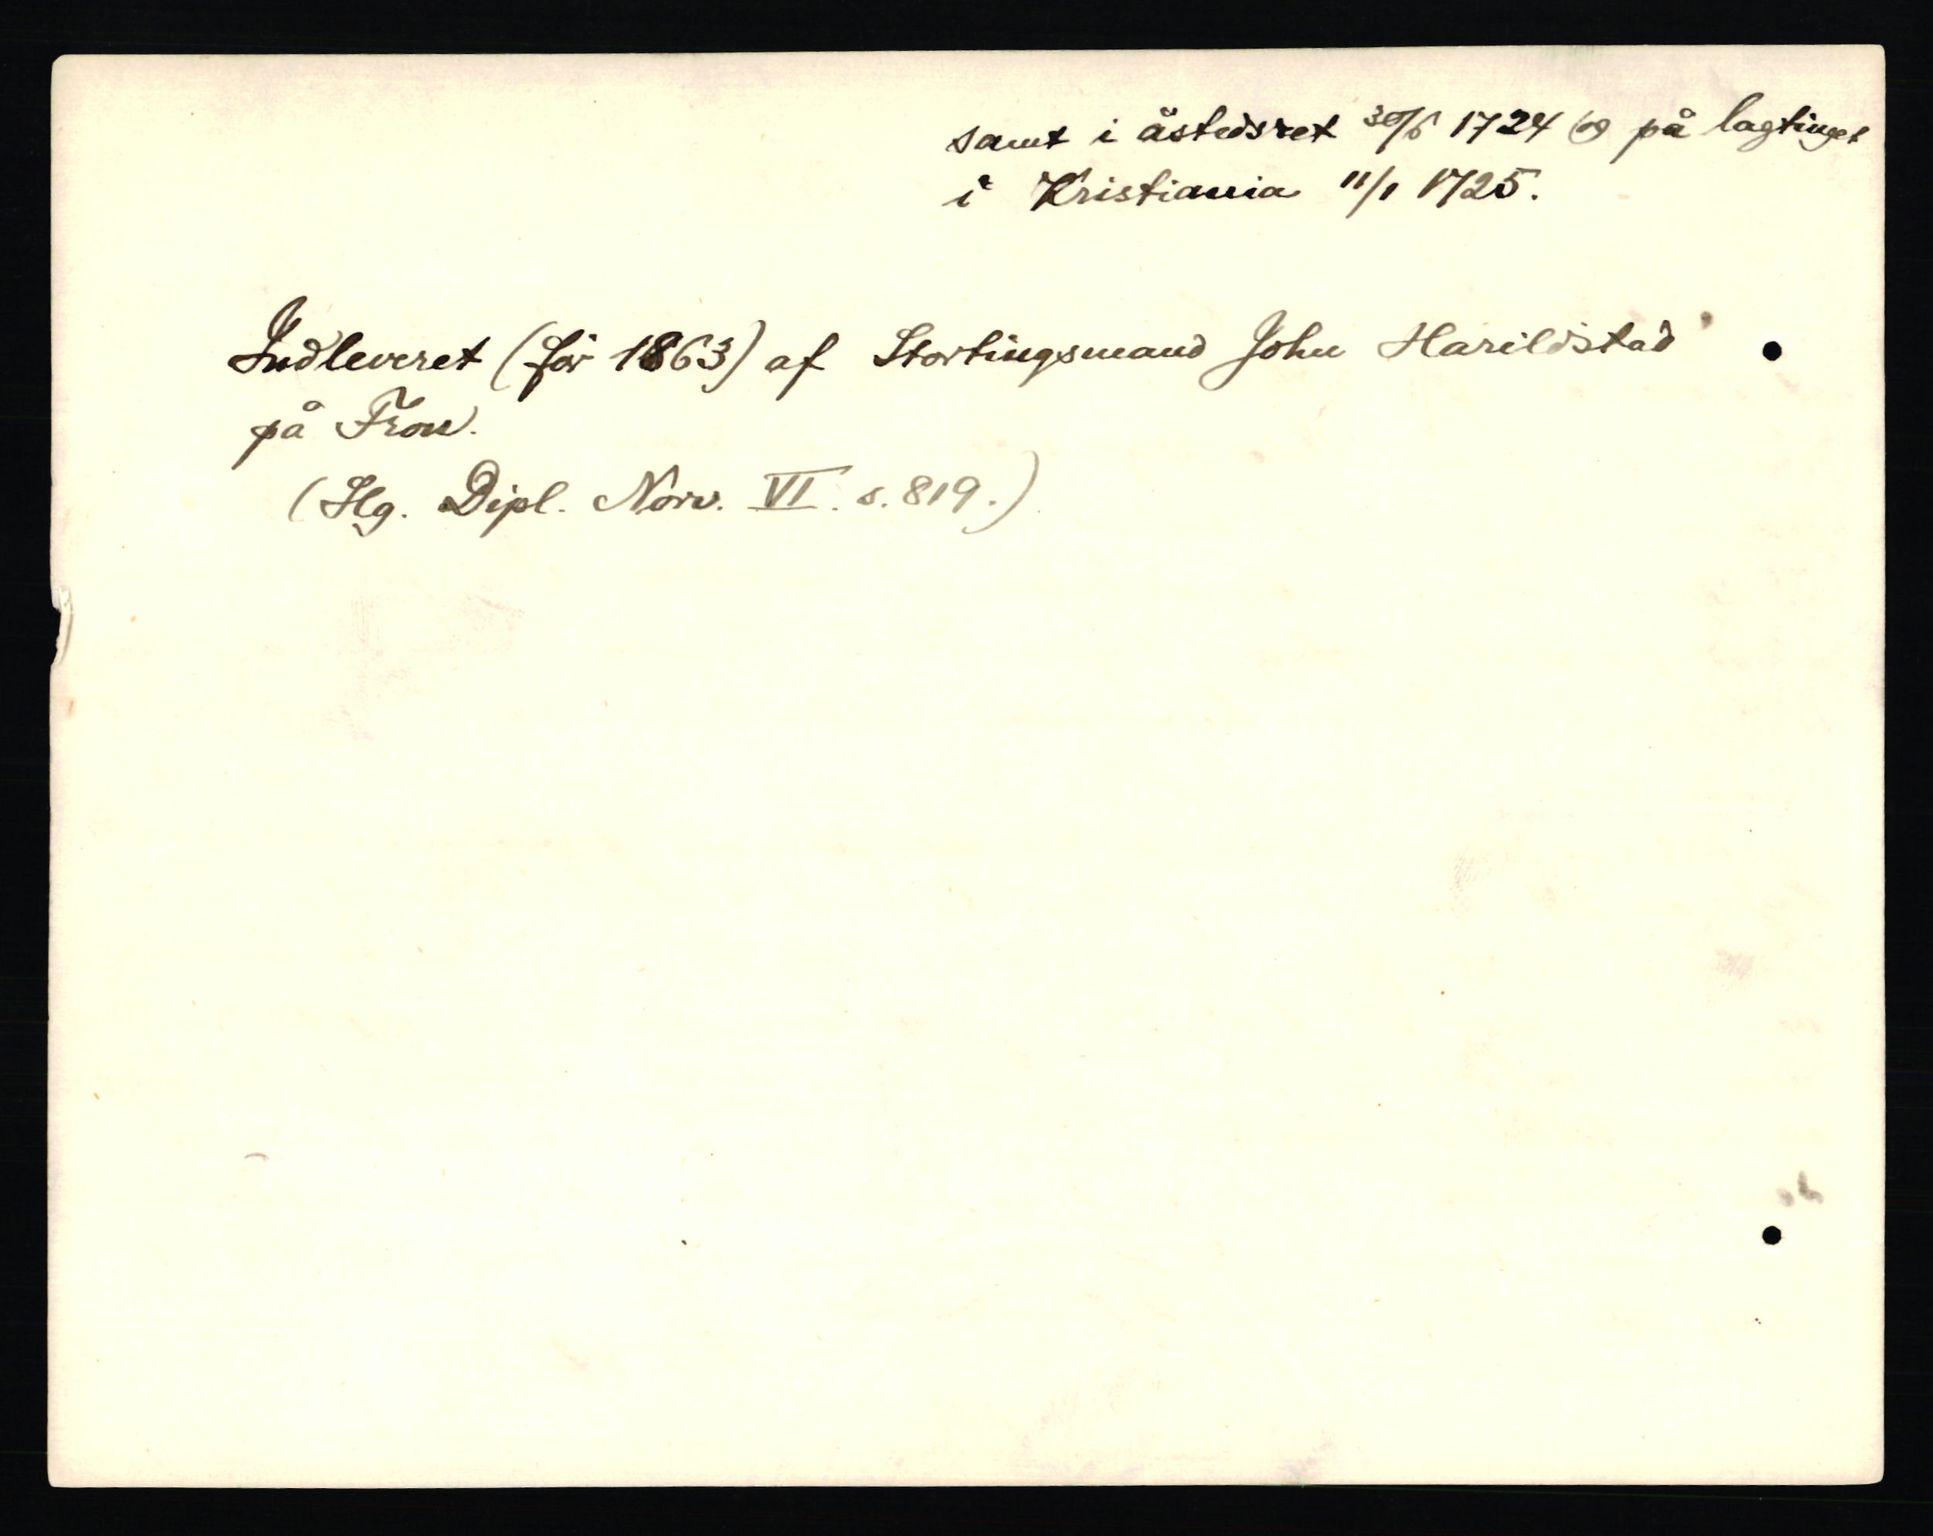 samt i åstedsret 30/5 1724 og på lagtinget
i Kristiania 11/1 1725.
Indleveret (før 1863) af Stortingsmand John Harildstad
på Fron.
(Hg. Dipl. Norv. VI. s. 819.)